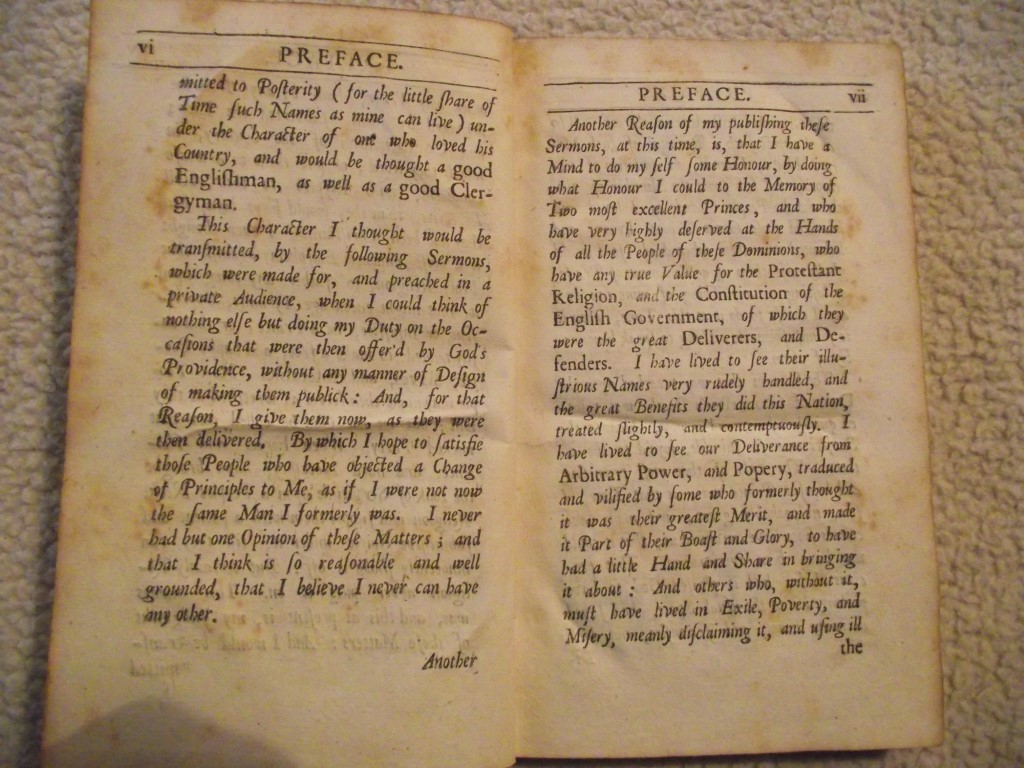 vi
PREFACE.
mitted to Poſterity ( for the little ſhare of
Time ſuch Names as mine can live ) un-
der the Character of one who loved his
Country, and would be thought a good
Engliſhman, as well as a good Cler-
gyman.
This Character I thought would be
tranſmitted, by the following Sermons,
which were made for, and preached in a
private Audience, when I could think of
nothing elſe but doing my Duty on the Oc-
caſions that were then offer'd by God's
Providence, without any manner of Deſign
of making them publick : And, for that
Reaſon, I give them now, as they were
then delivered. By which I hope to ſatisfie
thoſe People who have objected a Change
of Principles to Me, as if I were not now
the ſame Man I formerly was. I never
had but one Opinion of theſe Matters ; and
that I think is ſo reaſonable and well
grounded, that I believe I never can have
any other.
Another
PREFACE.
vii
Another Reaſon of my publiſhing theſe
Sermons, at this time, is, that I have a
Mind to do my ſelf ſome Honour, by doing
what Honour I could to the Memory of
Two moſt excellent Princes, and who
have very highly deſerved at the Hands
of all the People of theſe Dominions, who
have any true Value for the Proteſtant
Religion, and the Conſtitution of the
Engliſh Government, of which they
were the great Deliverers, and De-
fenders. I have lived to ſee their illu-
ſtrious Names very rudely handled, and
the great Benefits they did this Nation,
treated ſlightly, and contemptuouſly. I
have lived to ſee our Deliverance from
Arbitrary Power, and Popery, traduced
and vilified by ſome who formerly thought
it was their greateſt Merit, and made
it Part of their Boaſt and Glory, to have
had a little Hand and Share in bringing
it about : And others who, without it,
muſt have lived in Exile, Poverty, and
Miſery, meanly diſclaiming it, and uſing ill
the